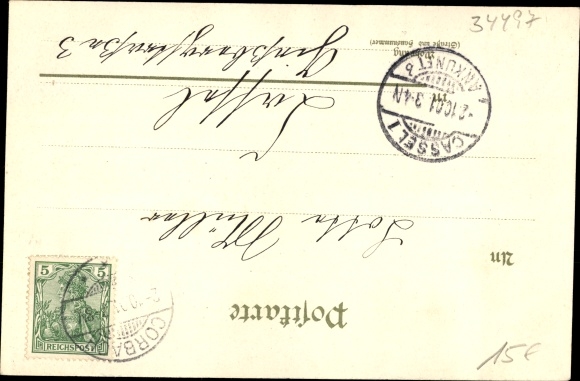 Postkarte
An
Lotte Müller
Cassel
Wohnung
(Straße und Hausnummer)
3
CASSEL 1
2.10.01.3-4N
ANKUNFT
CORBA
2.10.01
5 5
REICHSPOST
34497
15€